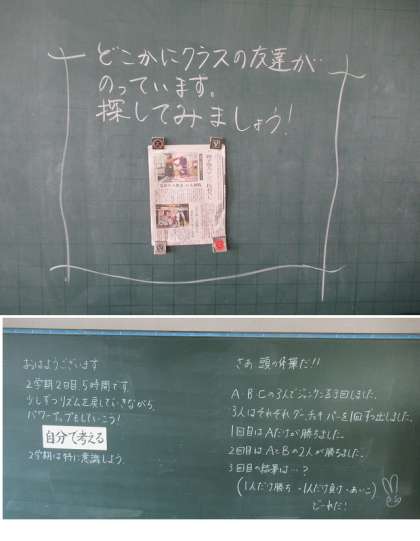 どこかにクラスの友達が
のっています。
探してみましょう!
おはようございます
2学期2日目、5時間です。
少しずつリズムを戻していきながら、
パワーアップもしていこう!
自分で考える
2学期は特に意識しよう。
さあ 頭の体操だ!!
A・B・Cの3人でジャンケンを3回しました。
3人はそれぞれグー、チョキ、パーを1回ずつ出しました。
1回目はAだけが勝ちました。
2回目はAとBの2人が勝ちました。
3回目の結果は…?
(1人だけ勝ち ・1人だけ負け ・あいこ)
どーれだ!